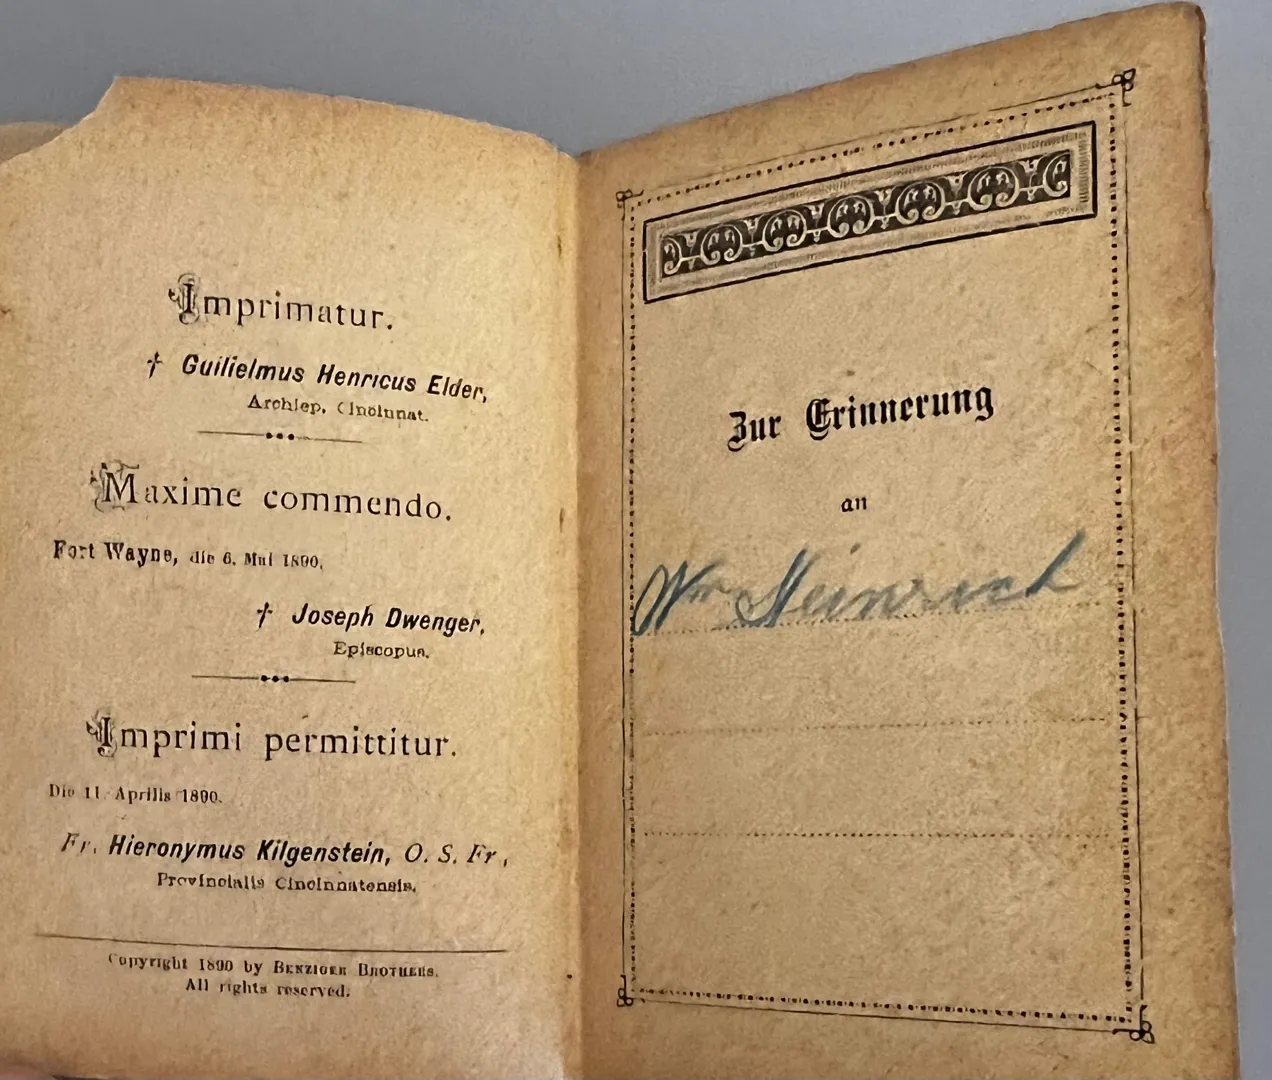 Imprimatur.
† Guilielmus Henricus Elder,
Archiep. Cincinnat.
Maxime commendo.
Fort Wayne, die 6. Mai 1890.
† Joseph Dwenger,
Episcopus.
Imprimi permittitur.
Die 11. Aprilis 1890.
Fr. Hieronymus Kilgenstein, O. S. Fr.,
Provincialis Cincinnatensis.
Copyright 1890 by BENZIGER BROTHERS.
All rights reserved.
Zur Erinnerung
an
Wm Heinrich